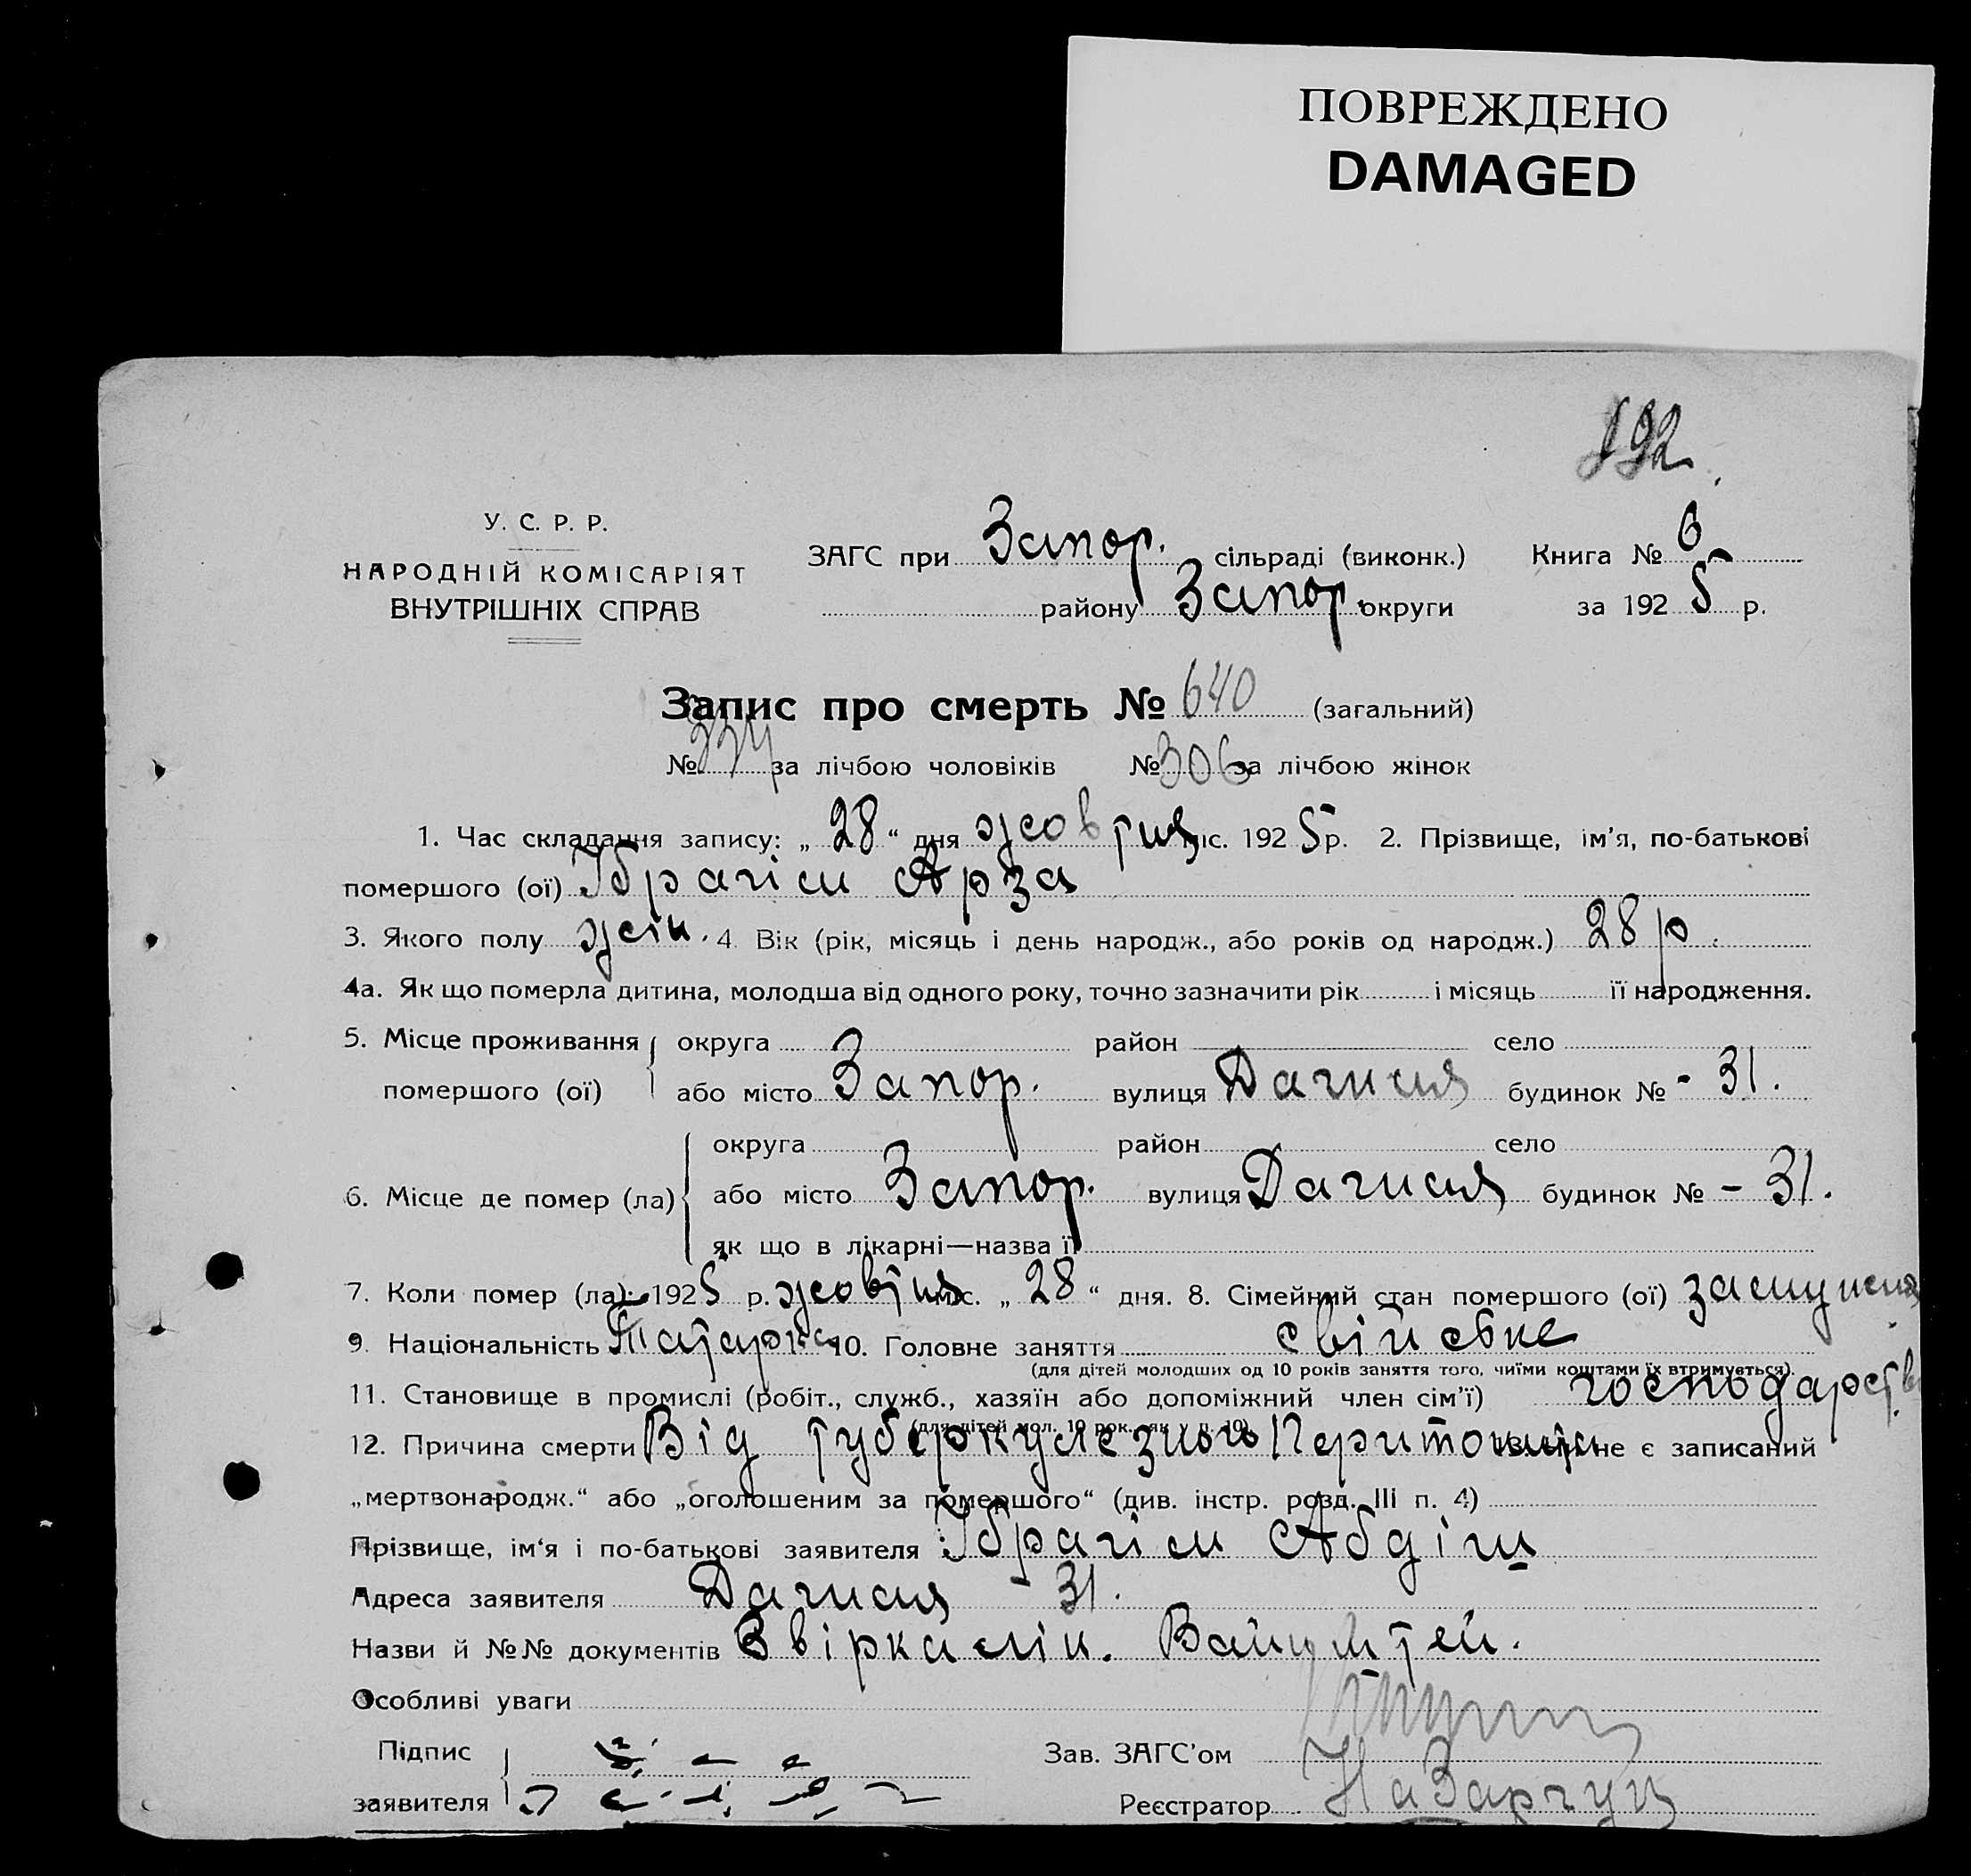 ПОВРЕЖДЕНО
DAMAGED
192.
У. С. Р. Р.
НАРОДНІЙ КОМІСАРІЯТ
ВНУТРІШНІХ СПРАВ
ЗАГС при Запор. сільраді (виконк.)
району Запор. округи
Книга № 6
за 1925 р.
Запис про смерть № 640 (загальний)
№ 334 за лічбою чоловіків № 306 за лічбою жінок
1. Час складання запису: „28“ дня жовтня міс. 1925 р. 2. Прізвище, ім’я, по-батькові
помершого (ої) Ібрагім Арза
3. Якого полу жін. 4. Вік (рік, місяць і день народж., або років од народж.) 28 р.
4а. Як що померла дитина, молодша від одного року, точно зазначити рік і місяць її народження.
5. Місце проживання помершого (ої)
округа район село
або місто Запор. вулиця будинок № - 31.
6. Місце де помер (ла)
округа район село
або місто Запор. вулиця будинок № - 31.
як що в лікарні—назва її
7. Коли помер (ла): 1925 р. жовтня міс. „28“ дня. 8. Сімейний стан помершого (ої) замужня
9. Національність Татарка 10. Головне заняття свійське
(для дітей молодших од 10 років заняття того, чиїми коштами їх втримується).
11. Становище в промислі (робіт., служб., хазяїн або допоміжний член сім’ї) господарств
(для дітей мол. 10 рок. як у п. 10)
12. Причина смерти Від туберкулезного Перитоніта не є записаний
„мертвонародж.“ або „оголошеним за помершого“ (див. інстр. розд. III п. 4)
Прізвище, ім‘я і по-батькові заявителя Ібрагім
Адреса заявителя - 31.
Назви й №№ документів Звірка лік.
Особливі уваги
Підпис
заявителя
Зав. ЗАГС’ом
Реєстратор Назарчук